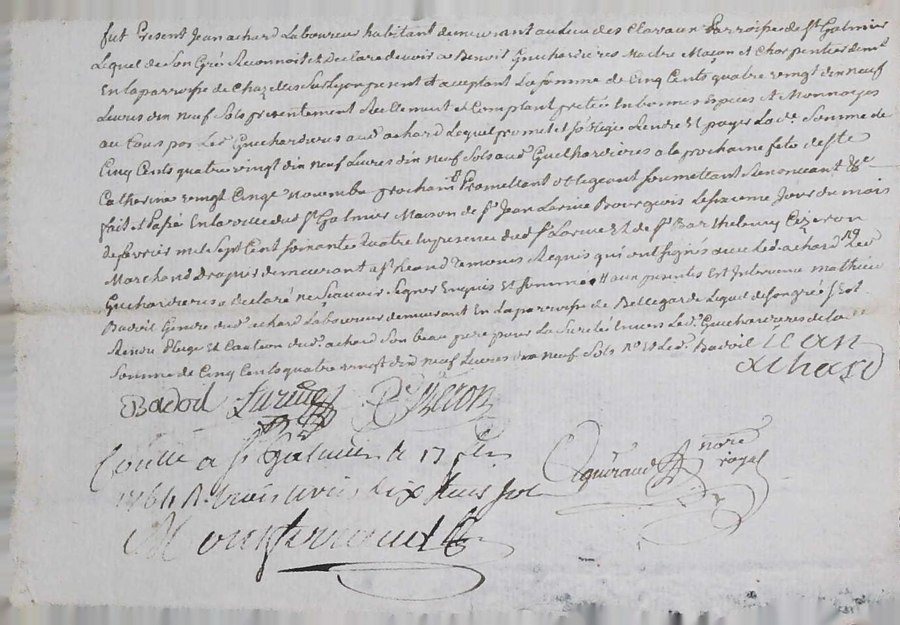 fut Present Jean achard Laboureur habitant demeurant au lieu des Clavaux Parroisse de St Galmier
Lequel de Son Gré Reconnoit et Declare devoir a Benoit Guichardieres Maitre Maçon et Charpentier demt
En la parroisse de Chazelles Sur Lyon present et acceptant La Somme de Cinq Cents quatre vingt dix neuf
Livres dix neuf Sols presentement Reellement et Comptant pretée En bonnes Especes et Monnoyes
au Cours par Led Guichardieres aud achard Lequel promet et soblige Rendre Et payer Lad Somme de
Cinq Cents quatre vingt dix neuf Livres dix neuf Sols aud Guichardieres a la prochaine fete de Ste
Catherine vingt Cinq novembre prochain Promettant obligeant soumettant Renonçant &c
fait et Passé En la ville dud St Galmier Maison de Sr Jean Larine Bourgeois Le seizieme Jour du mois
de fevrier mil Sept Cent soixante quatre En presence dud Sr Larine Et de Sr Barthelemy Cizeron
Marchand Drapier demeurant aud Temoins Requis qui ont signés avec Led achard Led
Guichardieres a declaré ne Scavoir Signer Enquis et Sommé aux presentes Est Intervenu mathieu
Badoil Gendre dud achard Laboureur demeurant En la parroisse de Bellegarde Lequel de Son gré s'est
Rendu Pleige et Caution dud achard Son beau pere pour La Sureté Envers Led Guichardieres de la
Somme de Cinq Cents quatre vingt dix neuf Livres dix neuf Sols Led Badoil Jean
achard
Badoil Larine Cizeron
Conlle a St Galmier le 17 fev
1764 R. trois livres dix huit sol
notre royal